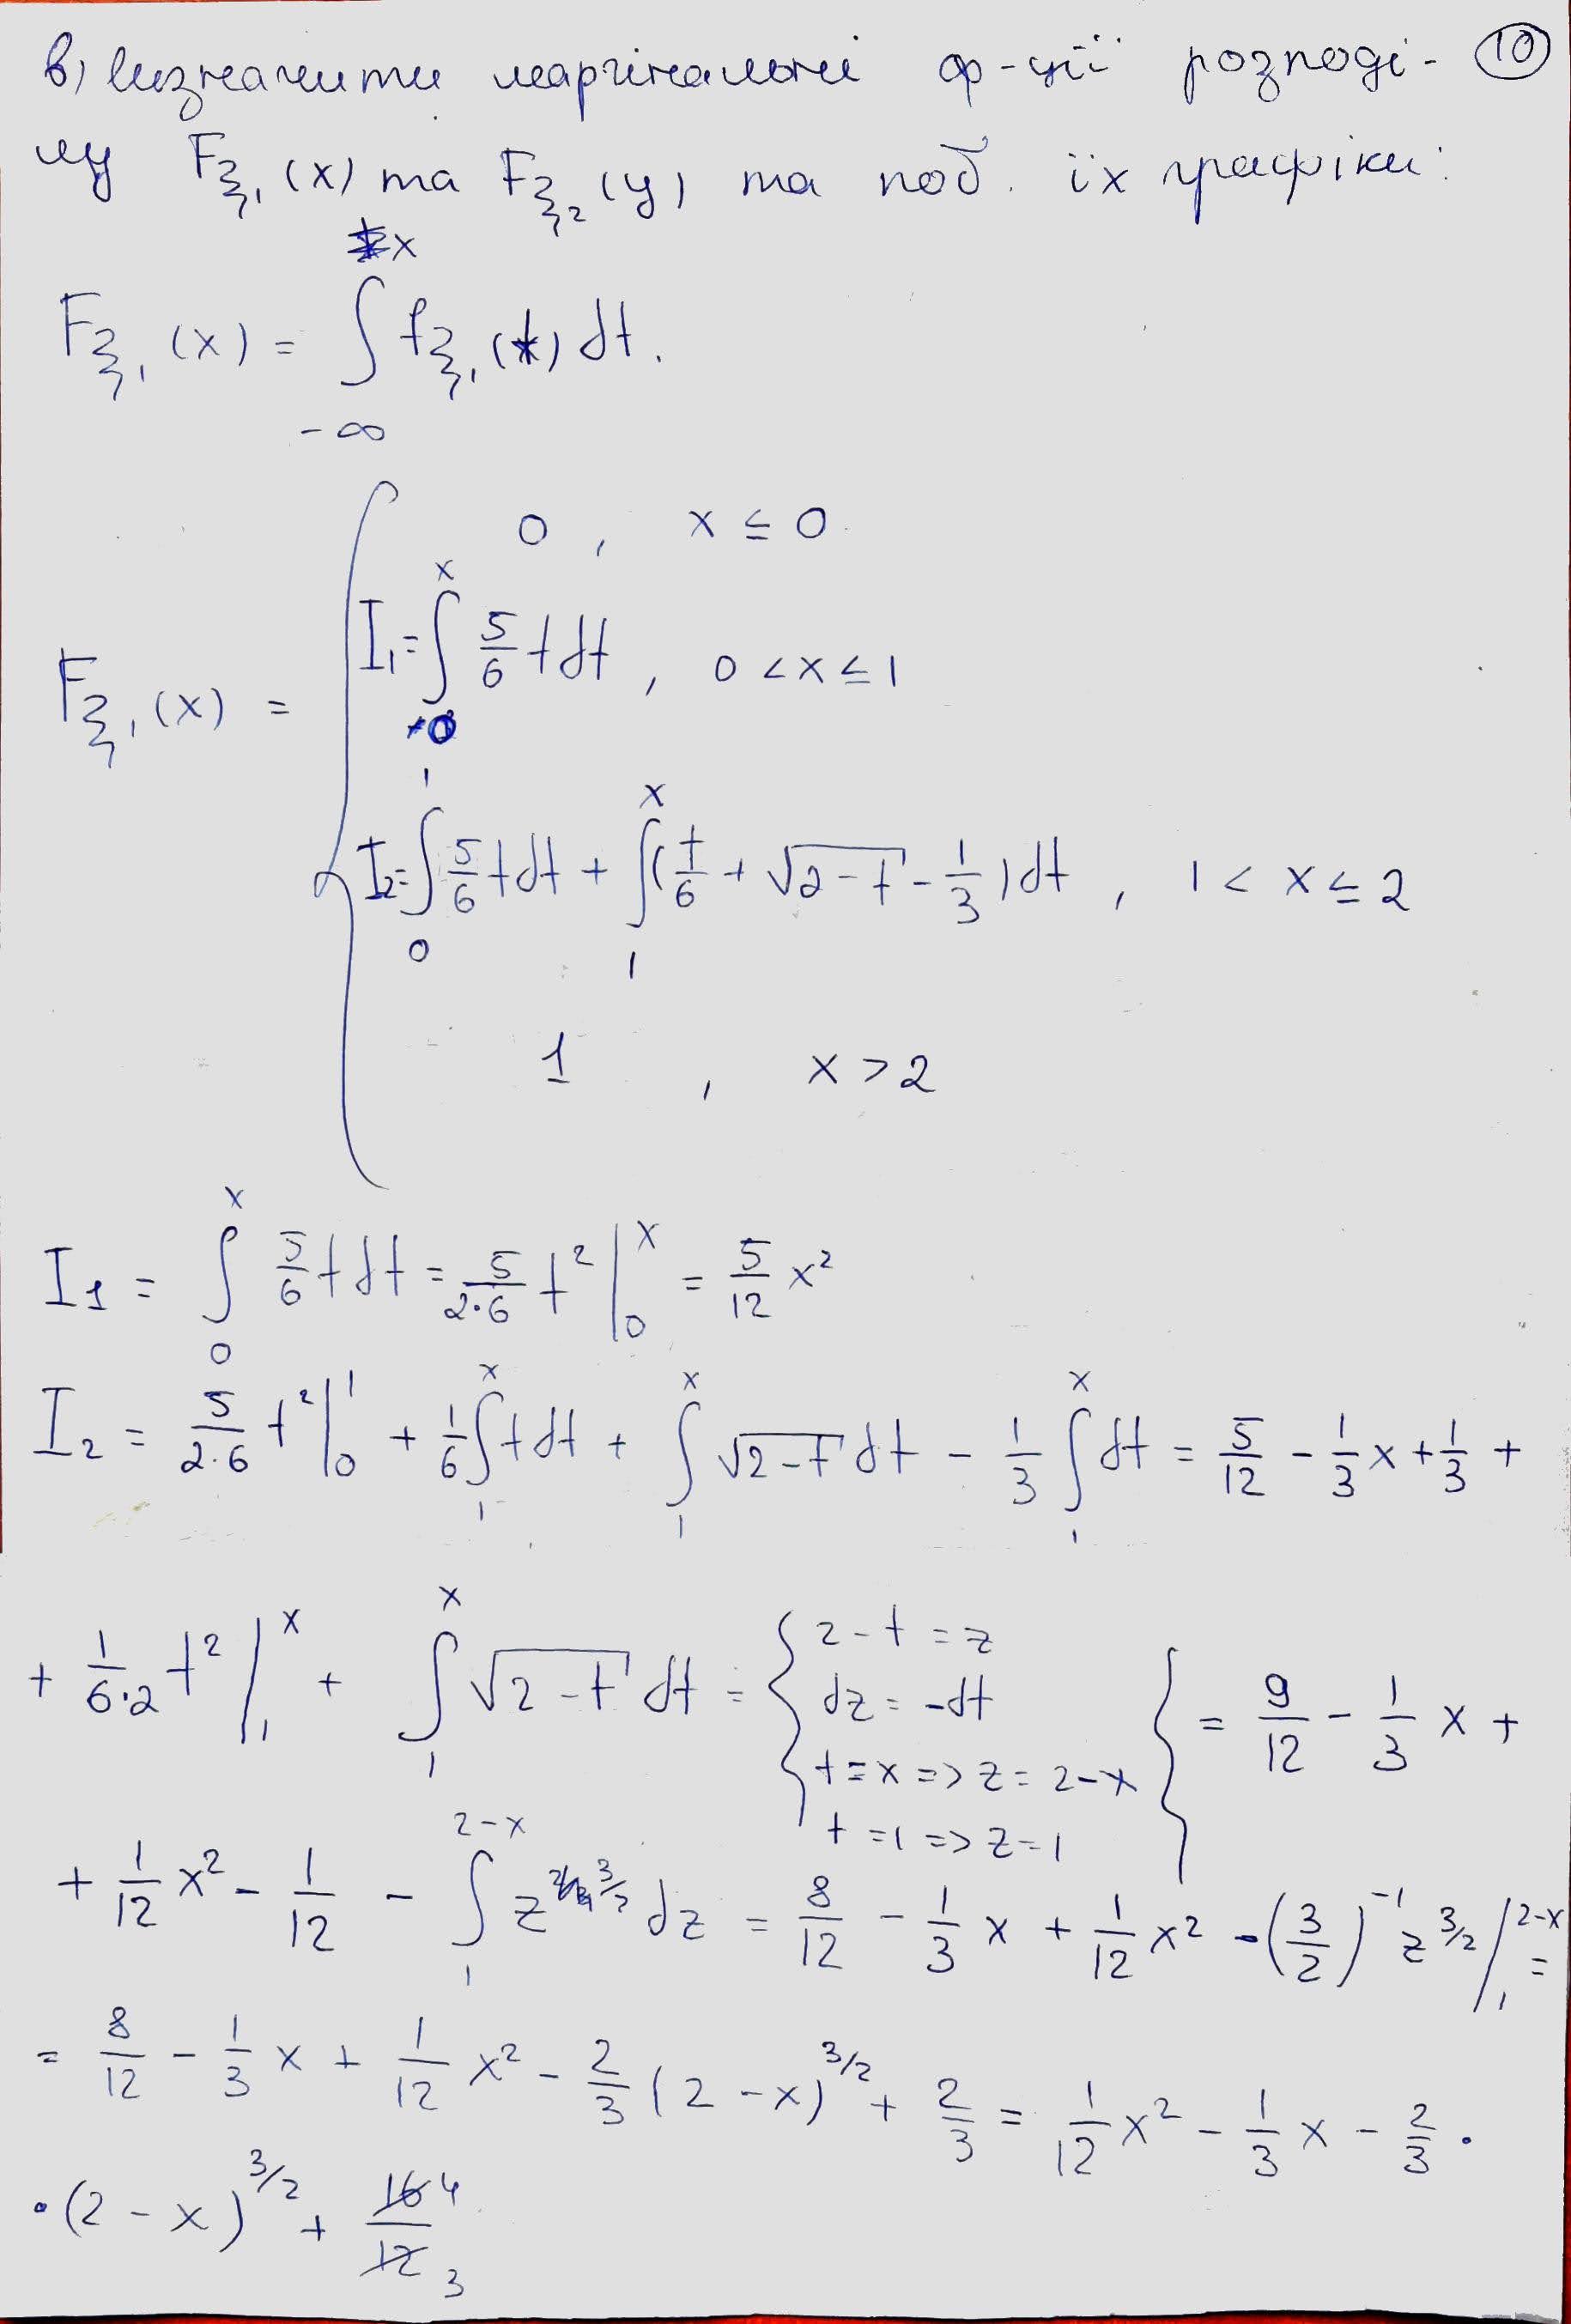 в) визначити маргінальні ф-ції розподі- 10
лу Fξ₁(x) та Fξ₂(y) та поб. їх графіки:
Fξ₁(x) = ∫_{-∞}^{x} fξ₁(t) dt.
Fξ₁(x) = {
0 , x ≤ 0
I₁ = ∫_{0}^{x} 5/6 t dt , 0 < x ≤ 1
I₂ = ∫_{0}^{1} 5/6 t dt + ∫_{1}^{x} (t/6 + √(2-t) - 1/3) dt , 1 < x ≤ 2
1 , x > 2
I₁ = ∫_{0}^{x} 5/6 t dt = 5/(2·6) t² |_{0}^{x} = 5/12 x²
I₂ = 5/(2·6) t² |_{0}^{1} + 1/6 ∫_{1}^{x} t dt + ∫_{1}^{x} √(2-t) dt - 1/3 ∫_{1}^{x} dt = 5/12 - 1/3 x + 1/3 +
+ 1/(6·2) t² |_{1}^{x} + ∫_{1}^{x} √(2-t) dt = { 2-t = z
dz = -dt
t = x => z = 2-x
t = 1 => z = 1 } = 9/12 - 1/3 x +
+ 1/12 x² - 1/12 - ∫_{1}^{2-x} z^{3/2} dz = 8/12 - 1/3 x + 1/12 x² - (3/2)^{-1} z^{3/2} |_{1}^{2-x} =
= 8/12 - 1/3 x + 1/12 x² - 2/3 (2-x)^{3/2} + 2/3 = 1/12 x² - 1/3 x - 2/3 ·
· (2-x)^{3/2} + 16/12 4/3